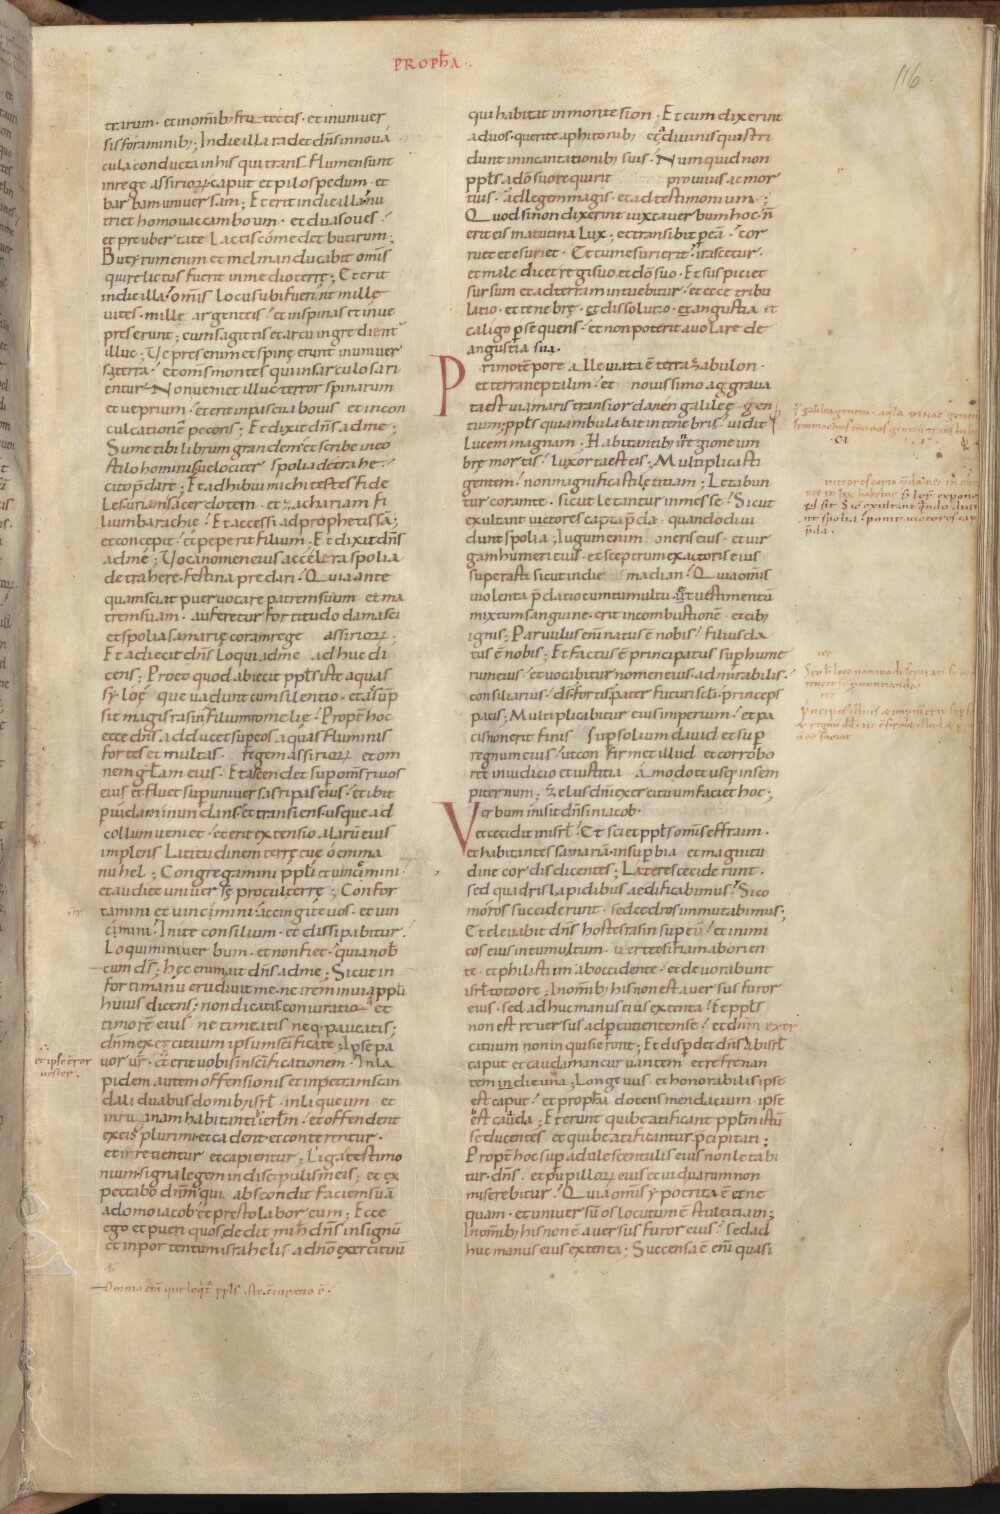 PROPHA
116
trarum · et inomīb; fructectis · et inuniver
sis foraminib; In die illa radet dn̄s innova
cula conducta in his qui trans flumen sunt
in rege assirioꝝ · caput et pilos pedum · et
barbam universam ; Et erit in die illa · nu
triet homo vaccam boum · et duas oves ·
et pre ubertate lactis comedet butirum ;
Butyrum enim et mel manducabit om̄is
qui relictus fuerit in medio terrę ; Et erit
in die illa · om̄is locus ubi fuerint mille
vites · mille argenteis · et in spinas et in ve
pres erunt ; cum sagittis et arcu ingredient
illuc ; Vepres enim et spinę erunt in univer
sa terra · et om̄s montes qui in sarculo sari
entur · Non veniet illuc terror spinarum
et veprium · et erit in pascua bovis et in con
culcatione pecoris ; Et dixit dn̄s ad me ;
Sume tibi librum grandem · et scribe in eo
stilo hominis · velociter spolia detrahe ·
cito p̄dare ; Et adhibui michi testes fide
les · uriam sacerdotem · et zachariam fi
lium barachie · Et accessi ad prophetissā ;
et concepit · et peperit filium ; Et dixit dn̄s
ad me ; Voca nomen eius accelera spolia
detrahere · festina predari · Quia ante
quam sciat puer vocare patrem suum et ma
trem suam · auferetur fortitudo damasci
et spolia samarię coram rege assirioꝝ ;
Et adiecit dn̄s loqui ad me adhuc di
cens ; Pro eo quod abiecit ppl̄s iste aquas
syloę que vadunt cum silentio · et assūp
sit magis rasin · et filium romelię · Propt̄ hoc
ecce dn̄s adducet sup eos aquas fluminis
fortes et multas · regem assirioꝝ et om
nem gl̄am eius · Et ascendet sup om̄s rivos
eius et fluet sup universas ripas eius · et ibit
p iudam inundans · et transiens usque ad
collum veniet · et erit extensio alarū eius
implens latitudinem terrę tuę o emma
nuhel ; Congregamini ppl̄i et vincimini ·
et audite universę procul terrę ; Confor
tamini et vincimini · accingite vos · et vin
cimini · Inite consilium · et dissipabitur ·
Loquimini verbum · et non fiet · quia nob̄
cum ds̄ ; hęc enim ait dn̄s ad me ; Sicut in
forti manu erudivit me · ne irem in via ppl̄i
huius dicens ; non dicatis coniuratio · et
timorē eius ne timeatis neq; paveatis ;
dn̄m exercituum ipsum sc̄ificate ; Ipse pa
vor vr̄ · et erit vobis in sc̄ificationem · In la
pidem autem offensionis et in petram scan
dali duabus domib; isrl̄ · in laqueum et
in ruinam habitantib; ierl̄m · et offendent
ex eis plurimi · et cadent · et conterentur ·
et irretientur et capientur ; Liga testimo
nium · signa legem in discipulis meis ; et ex
pectabo dn̄m qui abscondit faciem suā
a domo iacob · et prestolabor eum ; Ecce
ego et pueri quos dedit mihi dn̄s in signū
et in portentum israhelis a dn̄o exercituū
et ipse error
vester ·
Omnia em̄ que loqit̄ ppl̄s iste · coniuratio ē ·
qui habitat in monte sion · Et cum dixerint
ad vos · querite a phitonib; et divinis qui stri
dunt in incantationib; suis · Numquid non
ppl̄s a dō suo requirit pro vivis ac mor
tuis · ad legem magis · et ad testimonium ;
Quod si non dixerint iuxta verbum hoc · n̄
erit eis matutina lux ; et transibit p eā · cor
ruet et esuriet · Et cum esurierit · irascetur ·
et maledicet regi suo · et dō suo · Et suspiciet
sursum et ad terram intuebitur · et ecce tribu
latio · et tenebrę · et dissolutio · et angustia et
caligo psequens · et non poterit avolare de
angustia sua ·
Primo tēpore alleviata ē terra zabulon ·
et terra neptalim · et novissimo aggrava
ta est via maris trans iordanēn galileę gen
tium ; ppl̄s qui ambulabat in tenebris · vidit
lucem magnam · Habitantib; in regione um
brę mortis · lux orta est eis ; Multiplicasti
gentem · non magnificasti lętitiam ; Lętabun
tur coram te · sicut lętantur in messe · Sicut
exultant victores capta p̄da · quando divi
dunt spolia ; Iugum enim oneris eius · et vir
gam humeri eius · et sceptrum exactoris eius
superasti sicut in die madian · Quia om̄is
violenta p̄datio cum tumultu · et vestimentū
mixtum sanguine · erit in combustionē et cib;
ignis ; Parvulus eni natus ē nobis · filius da
tus ē nobis ; Et factus ē principatus sup hume
rum eius · et vocabitur nomen eius · admirabilis ·
consiliarius · ds̄ · fortis · pater futuri scl̄i · princeps
pacis ; Multiplicabitur eius imperium · et pa
cis non erit finis · sup solium david et sup
regnum eius · ut confirmet illud et corrobo
ret in iudicio et iustitia amodo et usq; in sem
piternum ; zelus dn̄i exercituum faciet hoc ;
Verbum misit dn̄s in iacob ·
et cecidit in isrl̄ · Et sciet ppl̄s omis effraim ·
et habitantes samariā · in supbia et magnitu
dine cordis dicentes ; Lateres ceciderunt ·
sed quadris lapidibus aedificabimus · Sico
moros succiderunt · sed cedros immutabimus ;
Et elevabit dn̄s hostes rasin sup eū · et inimi
cos eius in tumultum vertet · siriam ab orien
te · et philistim ab occidente · et devorabunt
isrl̄ toto ore ; In omīb; his non est aversus furor
eius · sed adhuc manus eius extenta · Et ppl̄s
non est reversus ad pcutientem se · et dn̄m exer
cituum non inquisierunt ; Et dispdet dn̄s ab isrl̄
caput et caudam · incurvantem et refrenan
tem in die una ; Longevus et honorabilis ipse
est caput · et propha docens mendacium · ipse
est cauda · Et erunt qui beatificant ppl̄m istū
seducentes et qui beatificantur p̄cipitati ;
Propt̄ hoc sup adulescentulis eius non lętabi
tur · dn̄s · et pupilloꝝ eius et viduarum non
miserebitur · Quia omis ypocrita ē et ne
quam · et universū os locutum ē stultitiam ;
In omīb; his non ē aversus furor eius · sed ad
huc manus eius extenta ; Succensa ē eni quasi